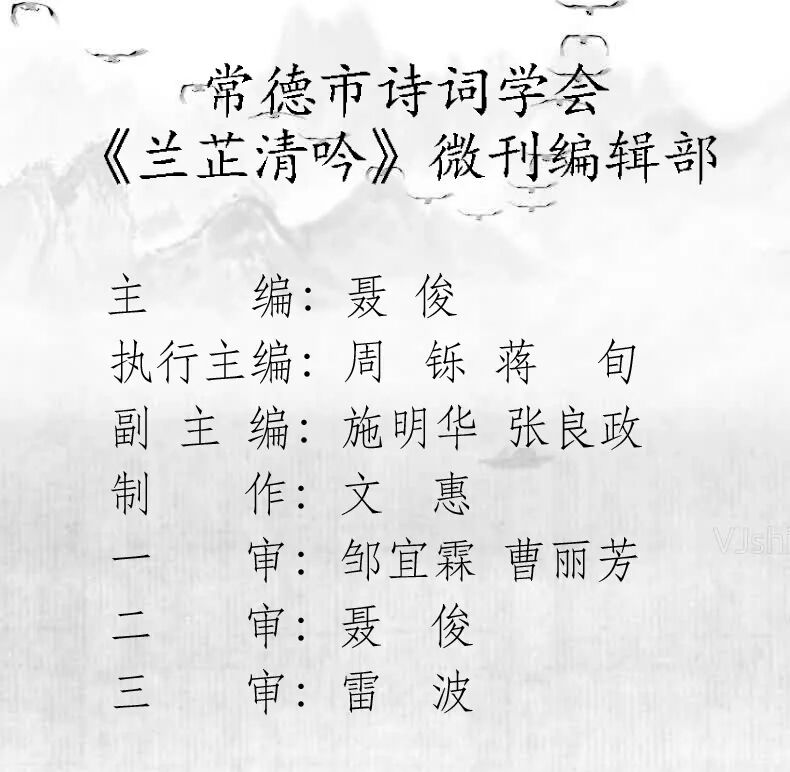 常德市诗词学会
《兰芷清吟》微刊编辑部
主编：聂俊
执行主编：周铄 蒋旬
副主编：施明华 张良政
制作：文惠
一审：邹宜霖 曹丽芳
二审：聂俊
三审：雷波
VJshi